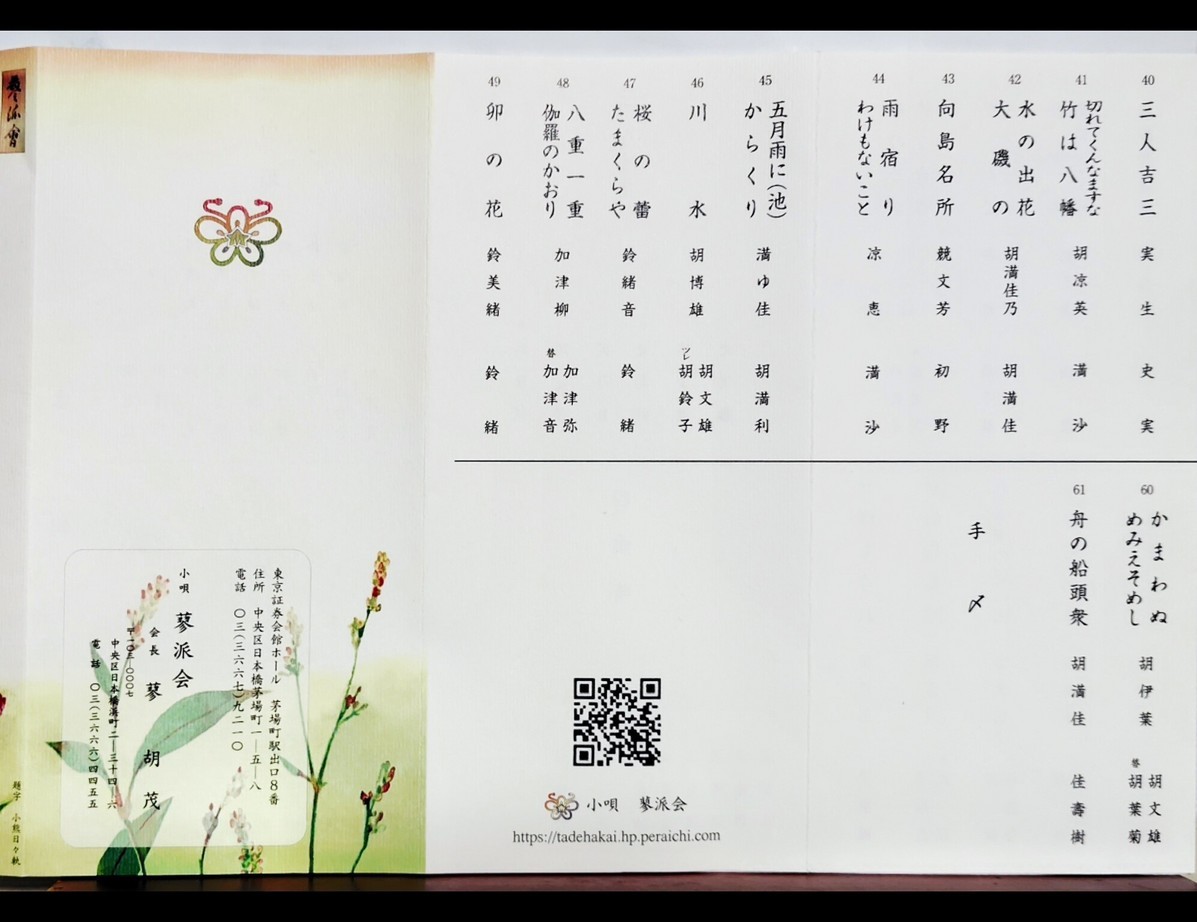 40
三人吉三
実生
史実
41
切れてくんなますな
竹は八幡
胡凉英
満沙
42
水の出花
大磯の
胡満佳乃
胡満佳
43
向島名所
競文芳
初野
44
雨宿り
わけもないこと
凉恵
満沙
45
五月雨に(池)
からくり
満ゆ佳
胡満利
46
川水
胡博雄
胡文雄
ツレ 胡鈴子
47
桜の蕾
たまくらや
鈴緒音
鈴緒
48
八重一重
伽羅のかおり
加津柳
加津弥
替 加津音
49
卯の花
鈴美緒
鈴緒
60
かまわぬ
めみえそめし
胡伊葉
胡文雄
替 胡葉菊
61
舟の船頭衆
胡満佳
佳壽樹
手〆
小唄 蓼派会
https://tadehakai.hp.peraichi.com
東京証券会館ホール 茅場町駅出口8番
住所 中央区日本橋茅場町一―五―八
電話 〇三(三六六七)九二一〇
小唄 蓼派会
会長 蓼胡茂
〒一〇三―〇〇〇七
中央区日本橋浜町二―三十四―六
電話 〇三(三六六六)四四五五
蓼派會
題字 小熊日々軌